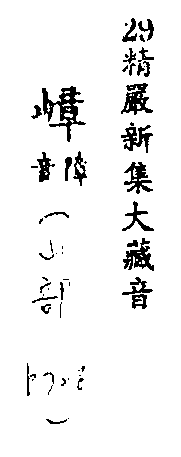 29精嚴新集大藏音
嶂
音障
(山部
)